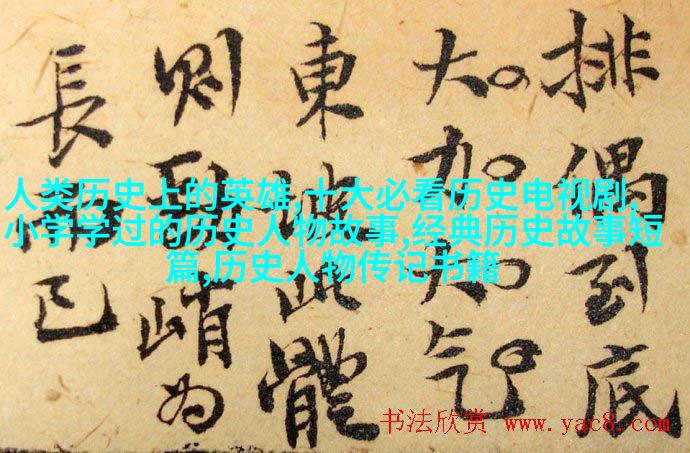 排偶到底
大气
東坡此體
則峭為
長已
人类历史上的英雄,十大必看历史电视剧,
小学学过的历史人物故事,经典历史故事短
篇,历史人物传记书籍
书法欣赏 www.yac8.com